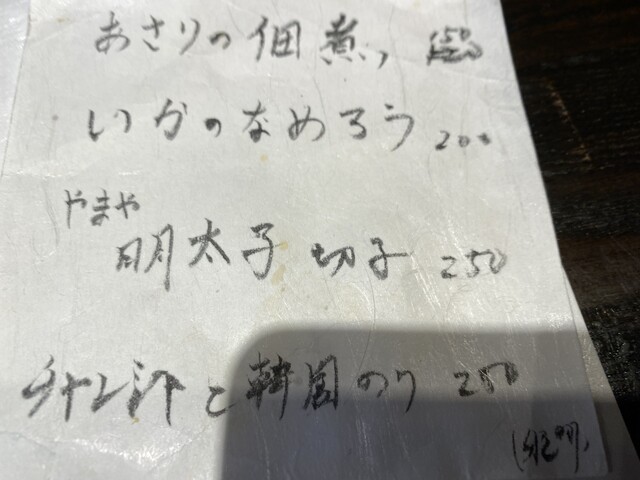 あさりの佃煮 150
いかのなめろう 200
やまや
明太子 切子 250
チャレ汁と韓国のり 250